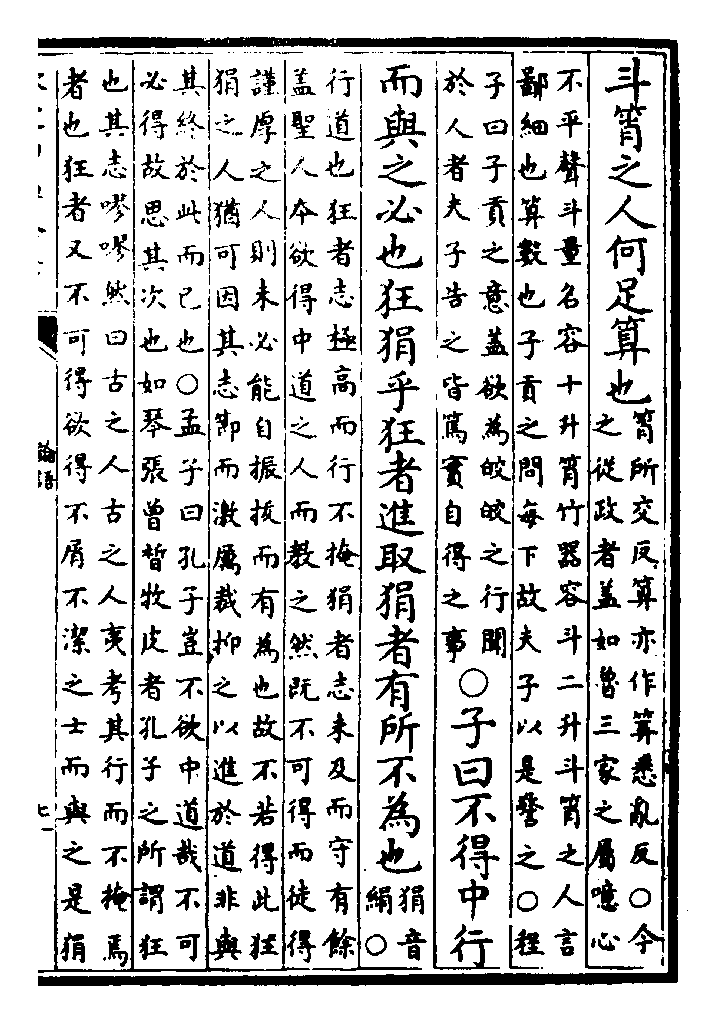 斗筲之人何足算也
筲所交反算亦作算悉亂反○今
之從政者蓋如魯三家之屬噫心
不平聲斗量名容十升筲竹器容斗二升斗筲之人言
鄙細也算數也子貢之問每下故夫子以是警之○程
子曰子貢之意蓋欲為皎皎之行聞
於人者夫子告之皆篤實自得之事
○子曰不得中行
而與之必也狂狷乎狂者進取狷者有所不為也
狷音
絹○
行道也狂者志極高而行不掩狷者志未及而守有餘
蓋聖人本欲得中道之人而教之然既不可得而徒得
謹厚之人則未必能自振拔而有為也故不若得此狂
狷之人猶可因其志節而激厲裁抑之以進於道非與
其終於此而已也○孟子曰孔子豈不欲中道哉不可
必得故思其次也如琴張曾晳牧皮者孔子之所謂狂
也其志嘐嘐然曰古之人古之人夷考其行而不掩焉
者也狂者又不可得欲得不屑不潔之士而與之是狷
論語